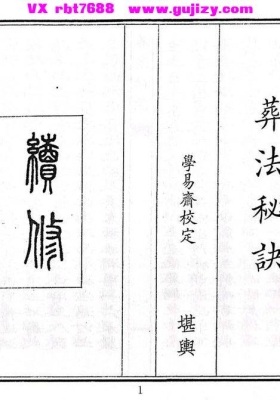 VX rbt7688 www.gujizy.com
葬法秘訣
學易齋校定
堪輿
續修
1